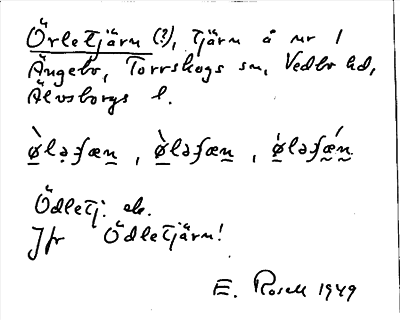 Örletjärn (?), tjärn å nr 1
Ängebo, Torrskogs sn, Vedbo hd,
Älvsborgs l.
ø̀ləʃæn , ø̀ləʃæn , ǿləʃæ̀n
Ödletj: ek.
Jfr Ödletjärn!
E. Rosell 1949